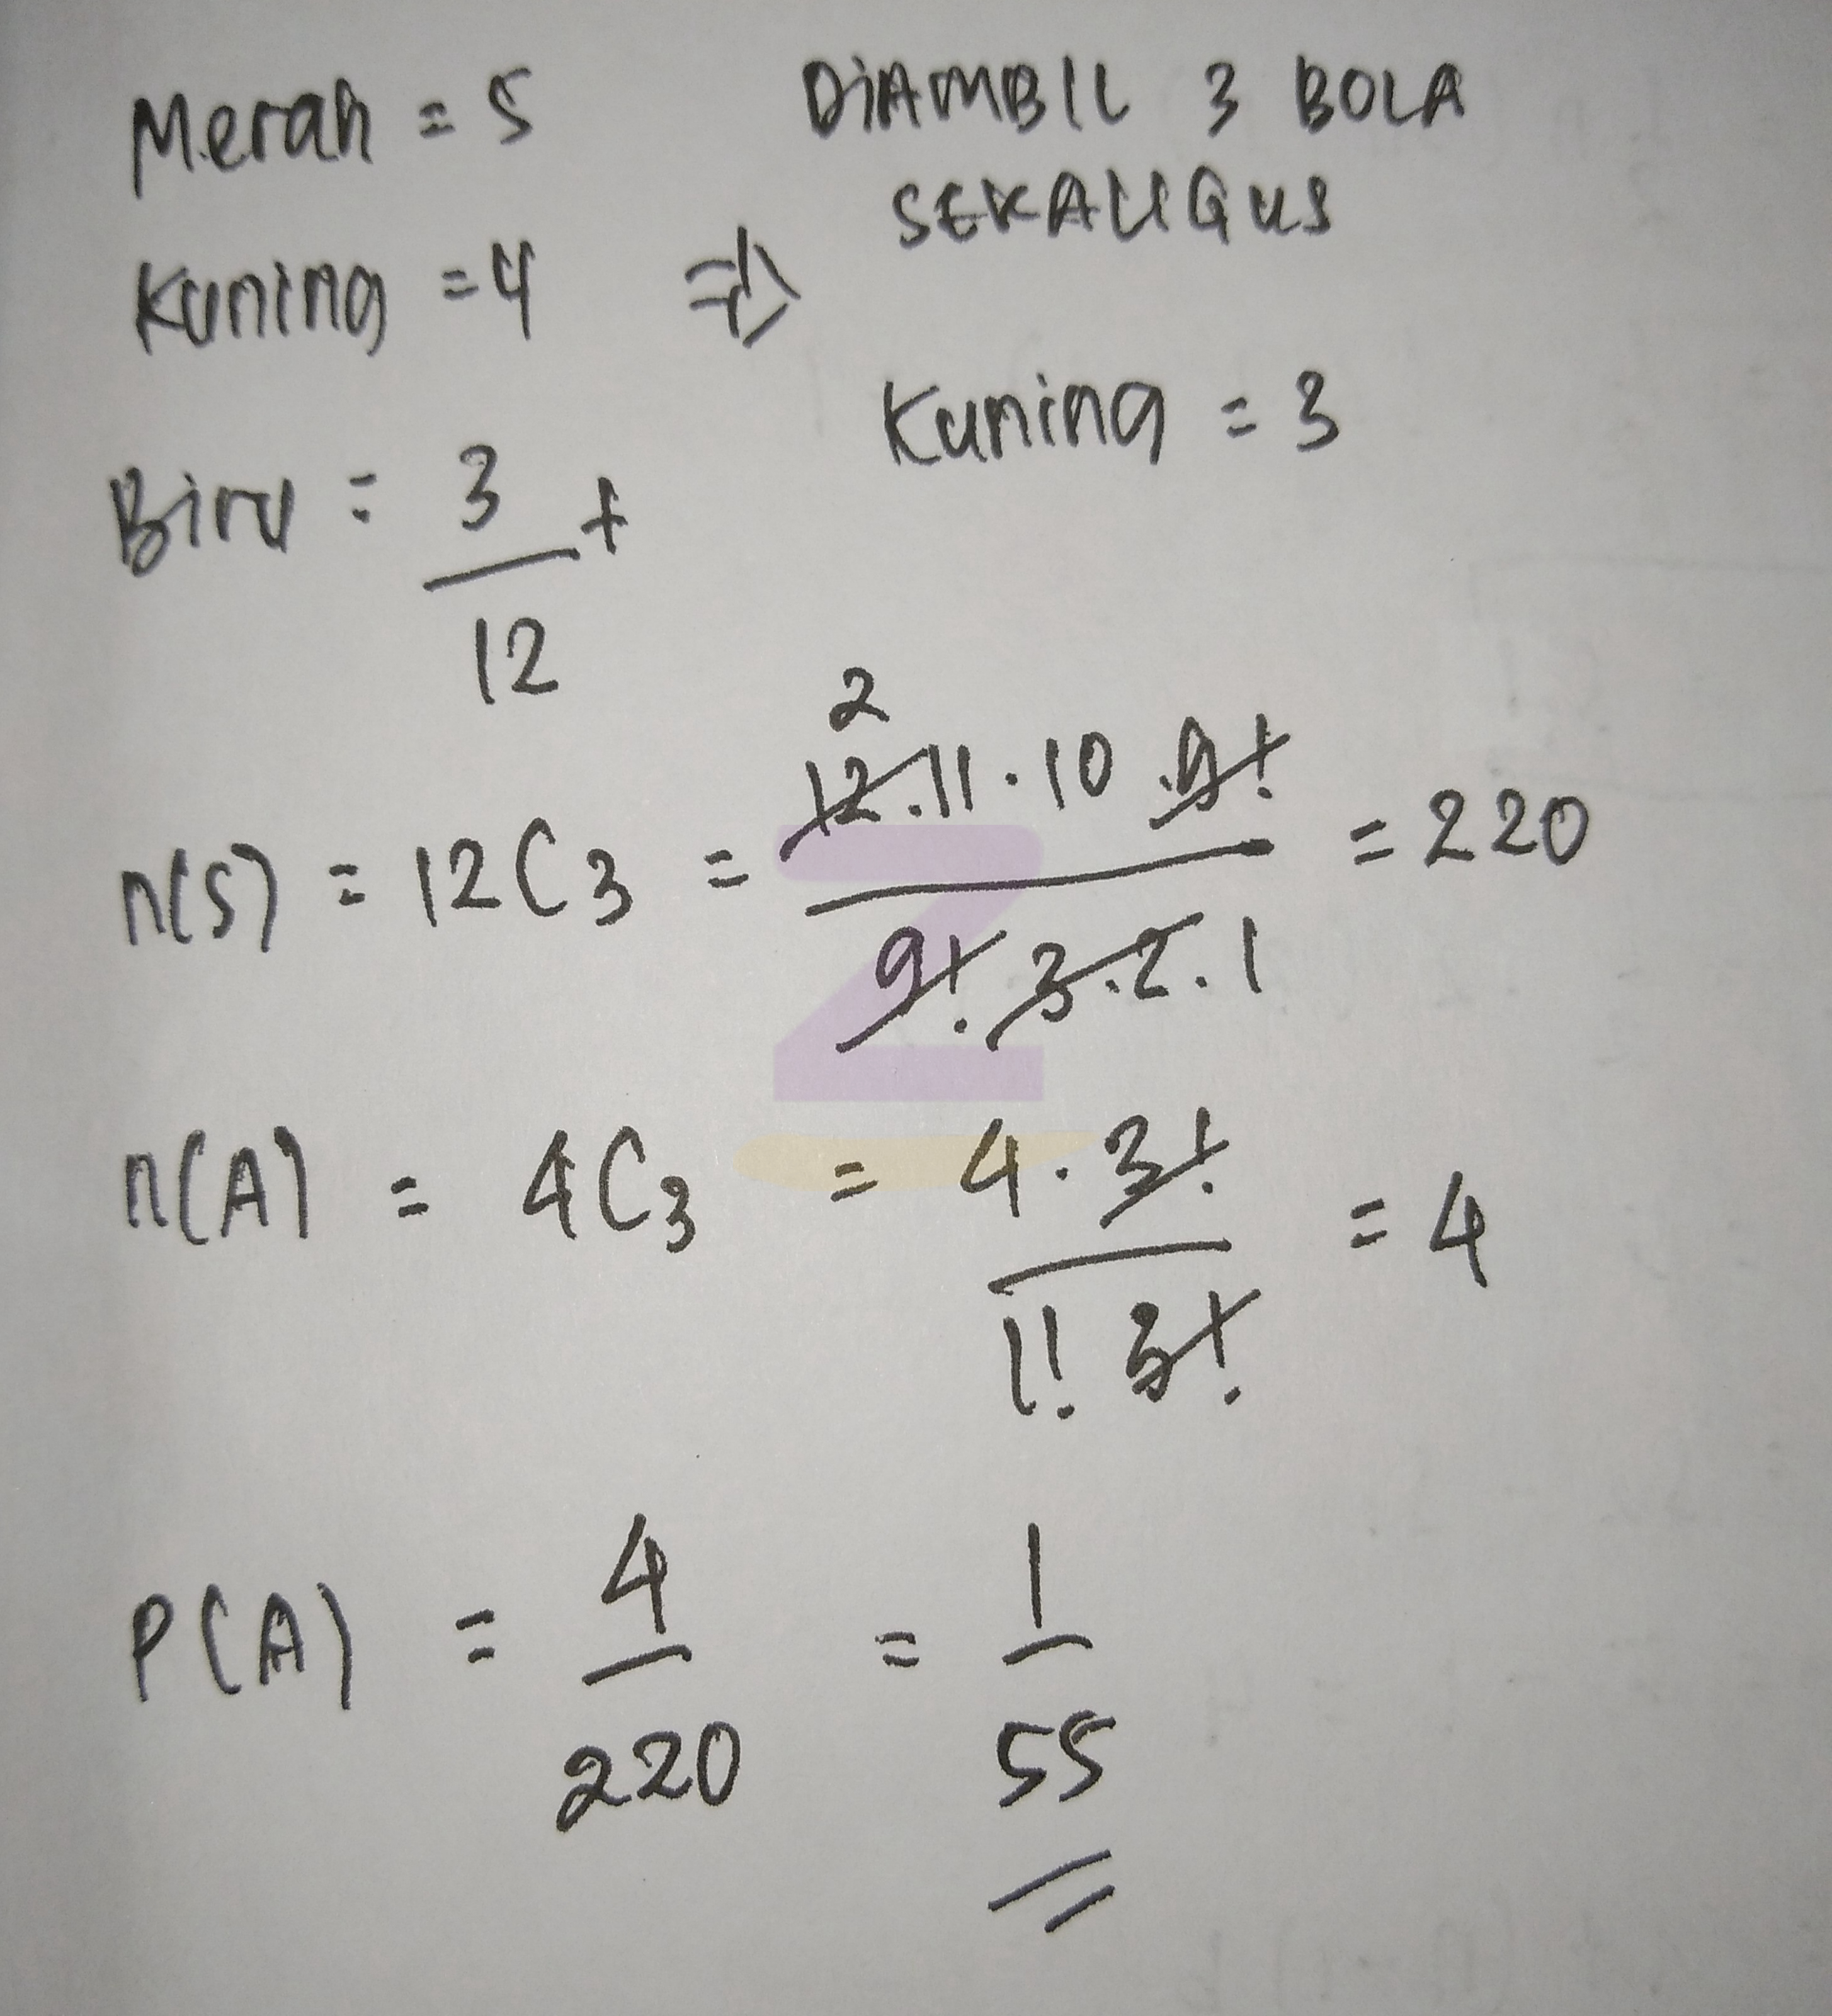 Merah = 5
Kuning = 4 =>
Biru = 3 +
12
DIAMBIL 3 BOLA
SEKALIGUS
Kuning = 3
2
n(S) = 12C3 = 12.11.10.9! / 9!.3.2.1 = 220
n(A) = 4C3 = 4.3! / 1! 3! = 4
P(A) = 4/220 = 1/55
Z